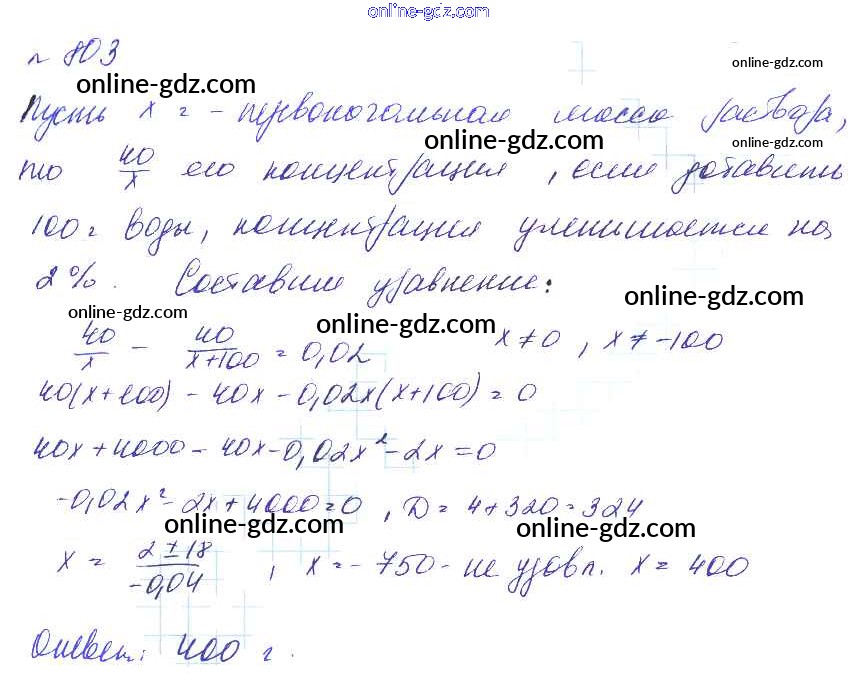 online-gdz.com
№ 803
online-gdz.com
online-gdz.com
Пусть x г - первоначальная масса раствора,
online-gdz.com
online-gdz.com
то 40/x его концентрация, если добавить
100 г воды, концентрация уменьшается на
2%. Составим уравнение:
online-gdz.com
online-gdz.com
online-gdz.com
40/x - 40/(x+100) = 0,02 x ≠ 0, x ≠ -100
40(x+100) - 40x - 0,02x(x+100) = 0
40x + 4000 - 40x - 0,02x² - 2x = 0
-0,02x² - 2x + 4000 = 0, D = 4 + 320 = 324
online-gdz.com
online-gdz.com
x = (2 ± 18)/(-0,04), x = -750 - не удовл. x = 400
Ответ: 400 г.